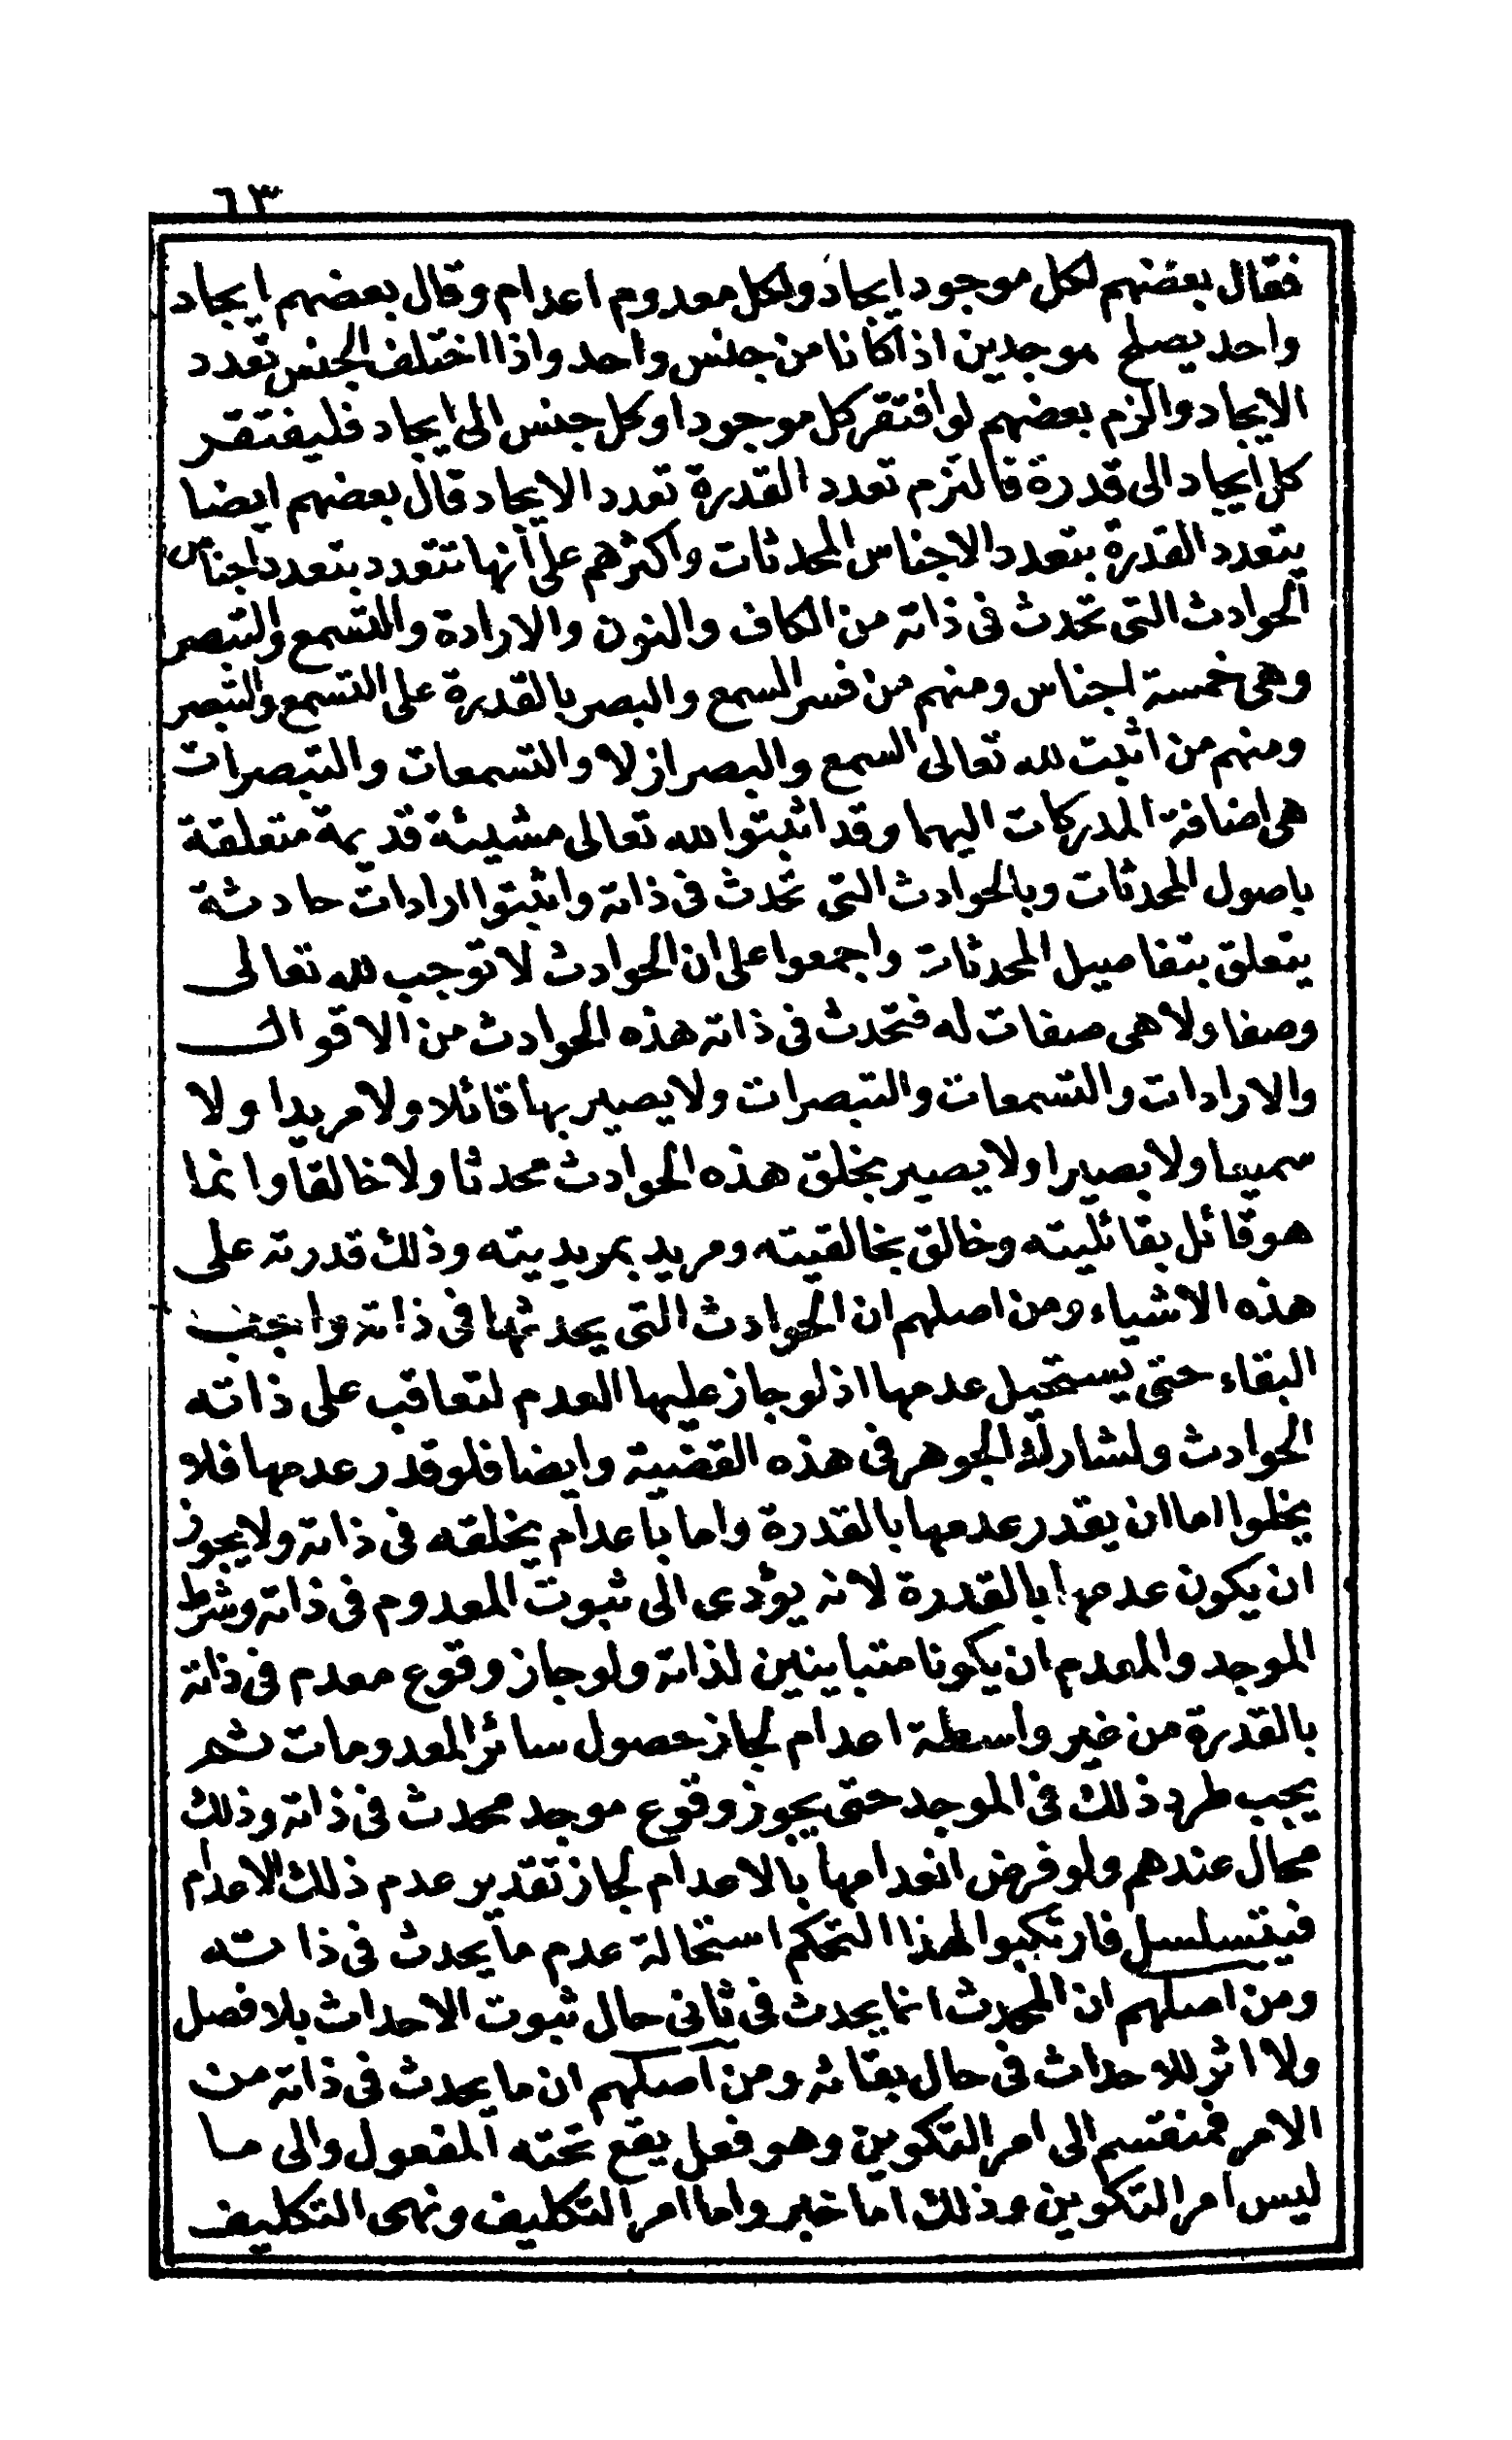 ٦٣
فقال بعضهم لكل موجود ايجاد ولكل معدوم اعدام وقال بعضهم ايجاد
واحد يصلح موجدين اذا كانا من جنس واحد واذا اختلف الجنس تعدد
الايجاد والزم بعضهم لو افتقر كل موجود او كل جنس الى ايجاد فليفتقر
كل ايجاد الى قدرة فالتزم تعدد القدرة تعدد الايجاد قال بعضهم ايضا
يتعدد القدرة بتعدد الاجناس المحدثات واكثرهم على انها تتعدد بتعدد اجناس
الحوادث التى تحدث فى ذاته من الكاف والنون والارادة والتسمع والتبصر
وهى خمسة اجناس ومنهم من فسر السمع والبصر بالقدرة على التسمع والتبصر
ومنهم من اثبت لله تعالى السمع والبصر ازلا والتسمعات والتبصرات
هى اضافة المدركات اليهما وقد اثبتوا لله تعالى مشيئة قديمة متعلقة
باصول المحدثات وبالحوادث التى تحدث فى ذاته واثبتوا ارادات حادثة
يتعلق بتفاصيل المحدثات واجمعوا على ان الحوادث لا توجب لله تعالى
وصفا ولا هى صفات له فتحدث فى ذاته هذه الحوادث من الاقوال
والارادات والتسمعات والتبصرات ولا يصير بها قائلا ولا مريدا ولا
سميعا ولا بصيرا ولا يصير بخلق هذه الحوادث محدثا ولا خالقا وانما
هو قائل بقائليته وخالق بخالقيته ومريد بمريديته وذلك قدرته على
هذه الاشياء ومن اصلهم ان الحوادث التى يحدثها فى ذاته واجب
البقاء حتى يستحيل عدمها اذ لو جاز عليها العدم لتعاقب على ذاته
الحوادث ولشارك الجوهر فى هذه القضية وايضا فلو قدر عدمها فلا
يخلوا اما ان يقدر عدمها بالقدرة واما باعدام يخلقه فى ذاته ولا يجوز
ان يكون عدمها بالقدرة لانه يؤدى الى ثبوت المعدوم فى ذاته وشرط
الموجد والمعدم ان يكونا متباينين لذاته ولو جاز وقوع معدم فى ذاته
بالقدرة من غير واسطة اعدام لجاز حصول سائر المعدومات ثم
يجب طرد ذلك فى الموجد حتى يجوز وقوع موجد محدث فى ذاته وذلك
محال عندهم ولو فرض انعدامها بالاعدام لجاز تقدير عدم ذلك الاعدام
فيتسلسل فارتكبوا لهذا التحكم استحالة عدم ما يحدث فى ذاته
ومن اصلهم ان المحدث انما يحدث فى ثانى حال ثبوت الاحداث بلا فصل
ولا اثر للاحداث فى حال بقائه ومن اصلهم ان ما يحدث فى ذاته من
الامر فمنقسم الى امر التكوين وهو فعل يقع تحته المفعول والى ما
ليس امر التكوين وذلك اما خبر واما امر التكليف ونهى التكليف